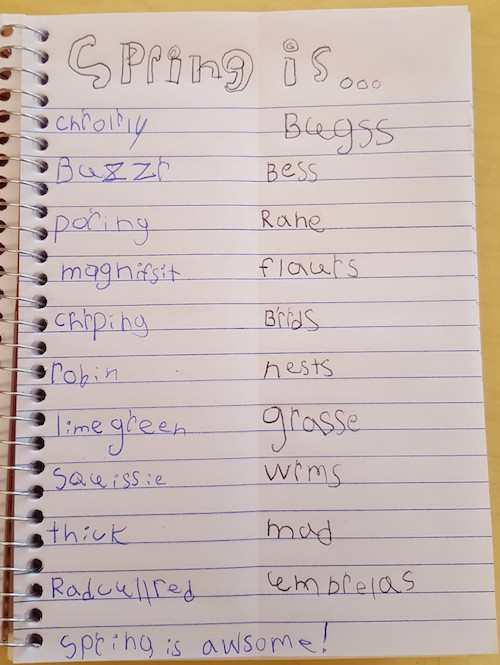 Spring is...
chrolrly Bugss
Buzzr Bess
poring Rane
magnifsit flauers
chrping Brids
robin nests
lime green grasse
squissie wrms
thick mad
Radcullred umbrelas
Spring is awsome!